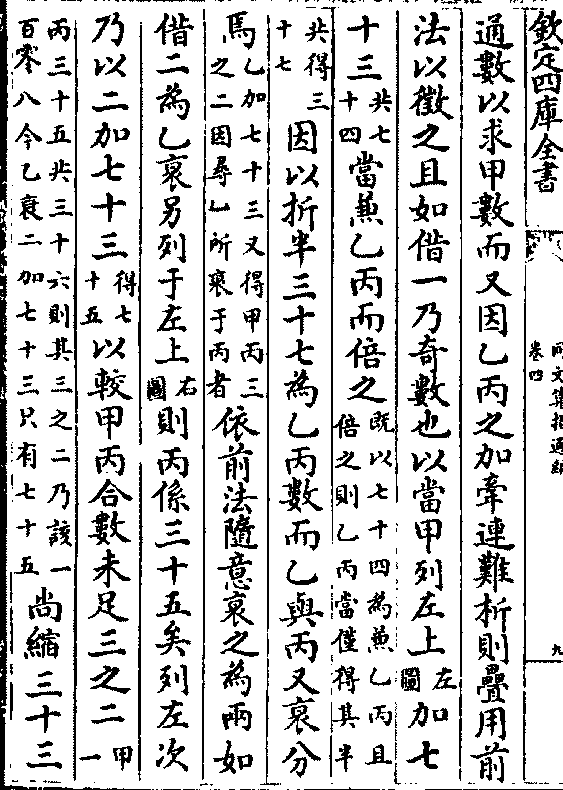 欽定四庫全書
同文算指通編
卷四
九
通數以求甲數而又因乙丙之加牽連難析則疊用前
法以徵之且如借一乃奇數也以當甲列左上左圖加七
十三共七十四當兼乙丙而倍之既以七十四為兼乙丙且倍之則乙丙當僅得其半
共得三十七因以折半三十七為乙丙數而乙與丙又裒分
馬乙加七十三又得甲丙三之二因尋乙所裒于丙者依前法隨意裒之為兩如
借二為乙裒另列于左上右圖則丙係三十五矣列左次
乃以二加七十三得七十五以較甲丙合數未足三之二甲一
丙三十五共三十六則其三之二乃該一百零八今乙裒二加七十三只有七十五尚縮三十三